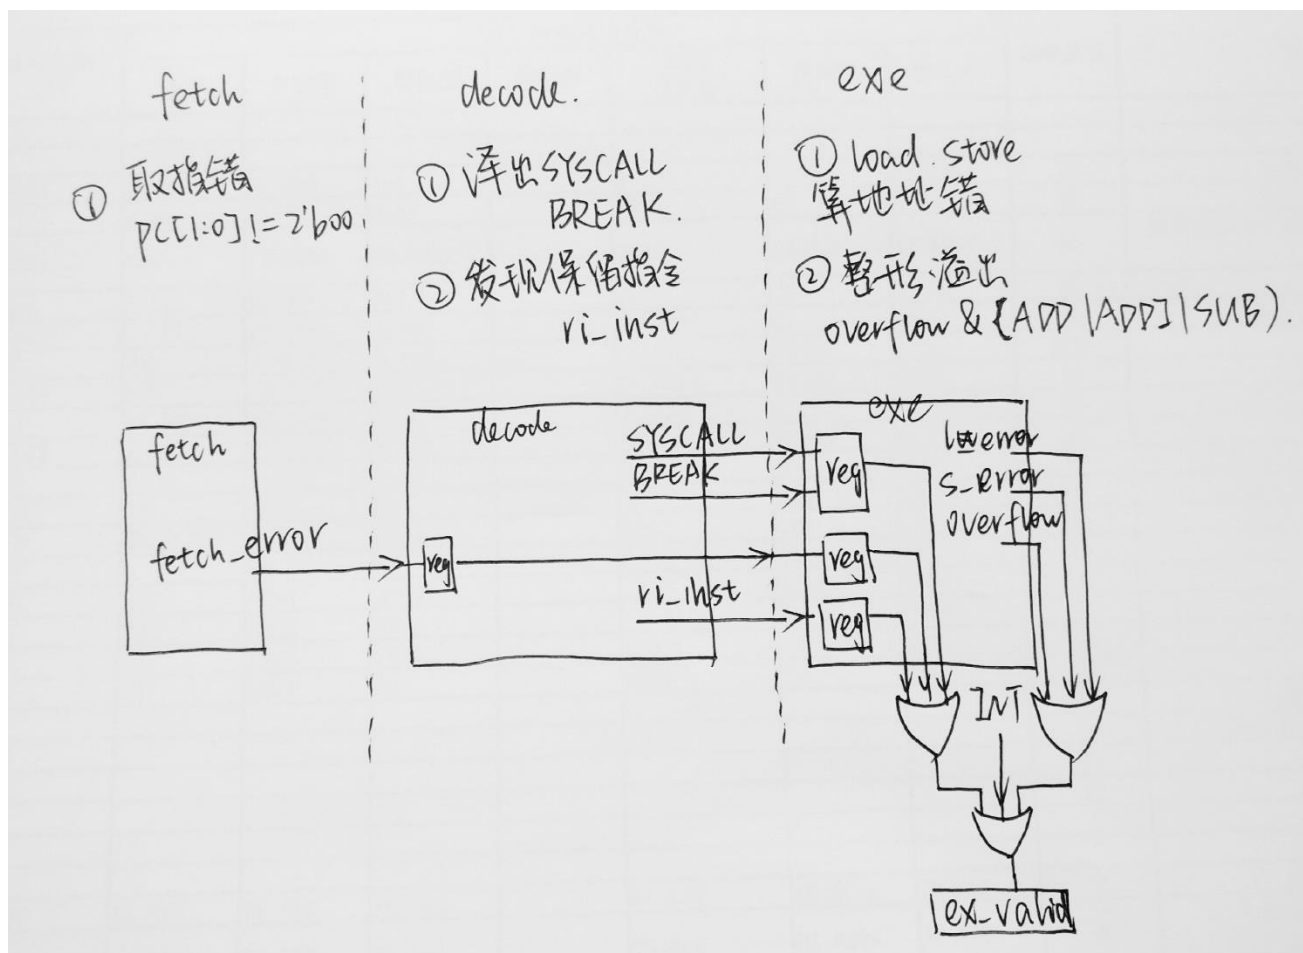 fetch
decode.
exe
① 取指错
PC[1:0]!=2'b00
① 译出SYSCALL
BREAK.
② 发现保留指令
ri_inst
① load.store
算地地错
② 整形溢出
overflow & (ADD|ADDI|SUB).
fetch
fetch_error
decode
SYSCALL
BREAK
reg
ri_inst
exe
reg
reg
reg
s_error
overflow
INT
ex_valid